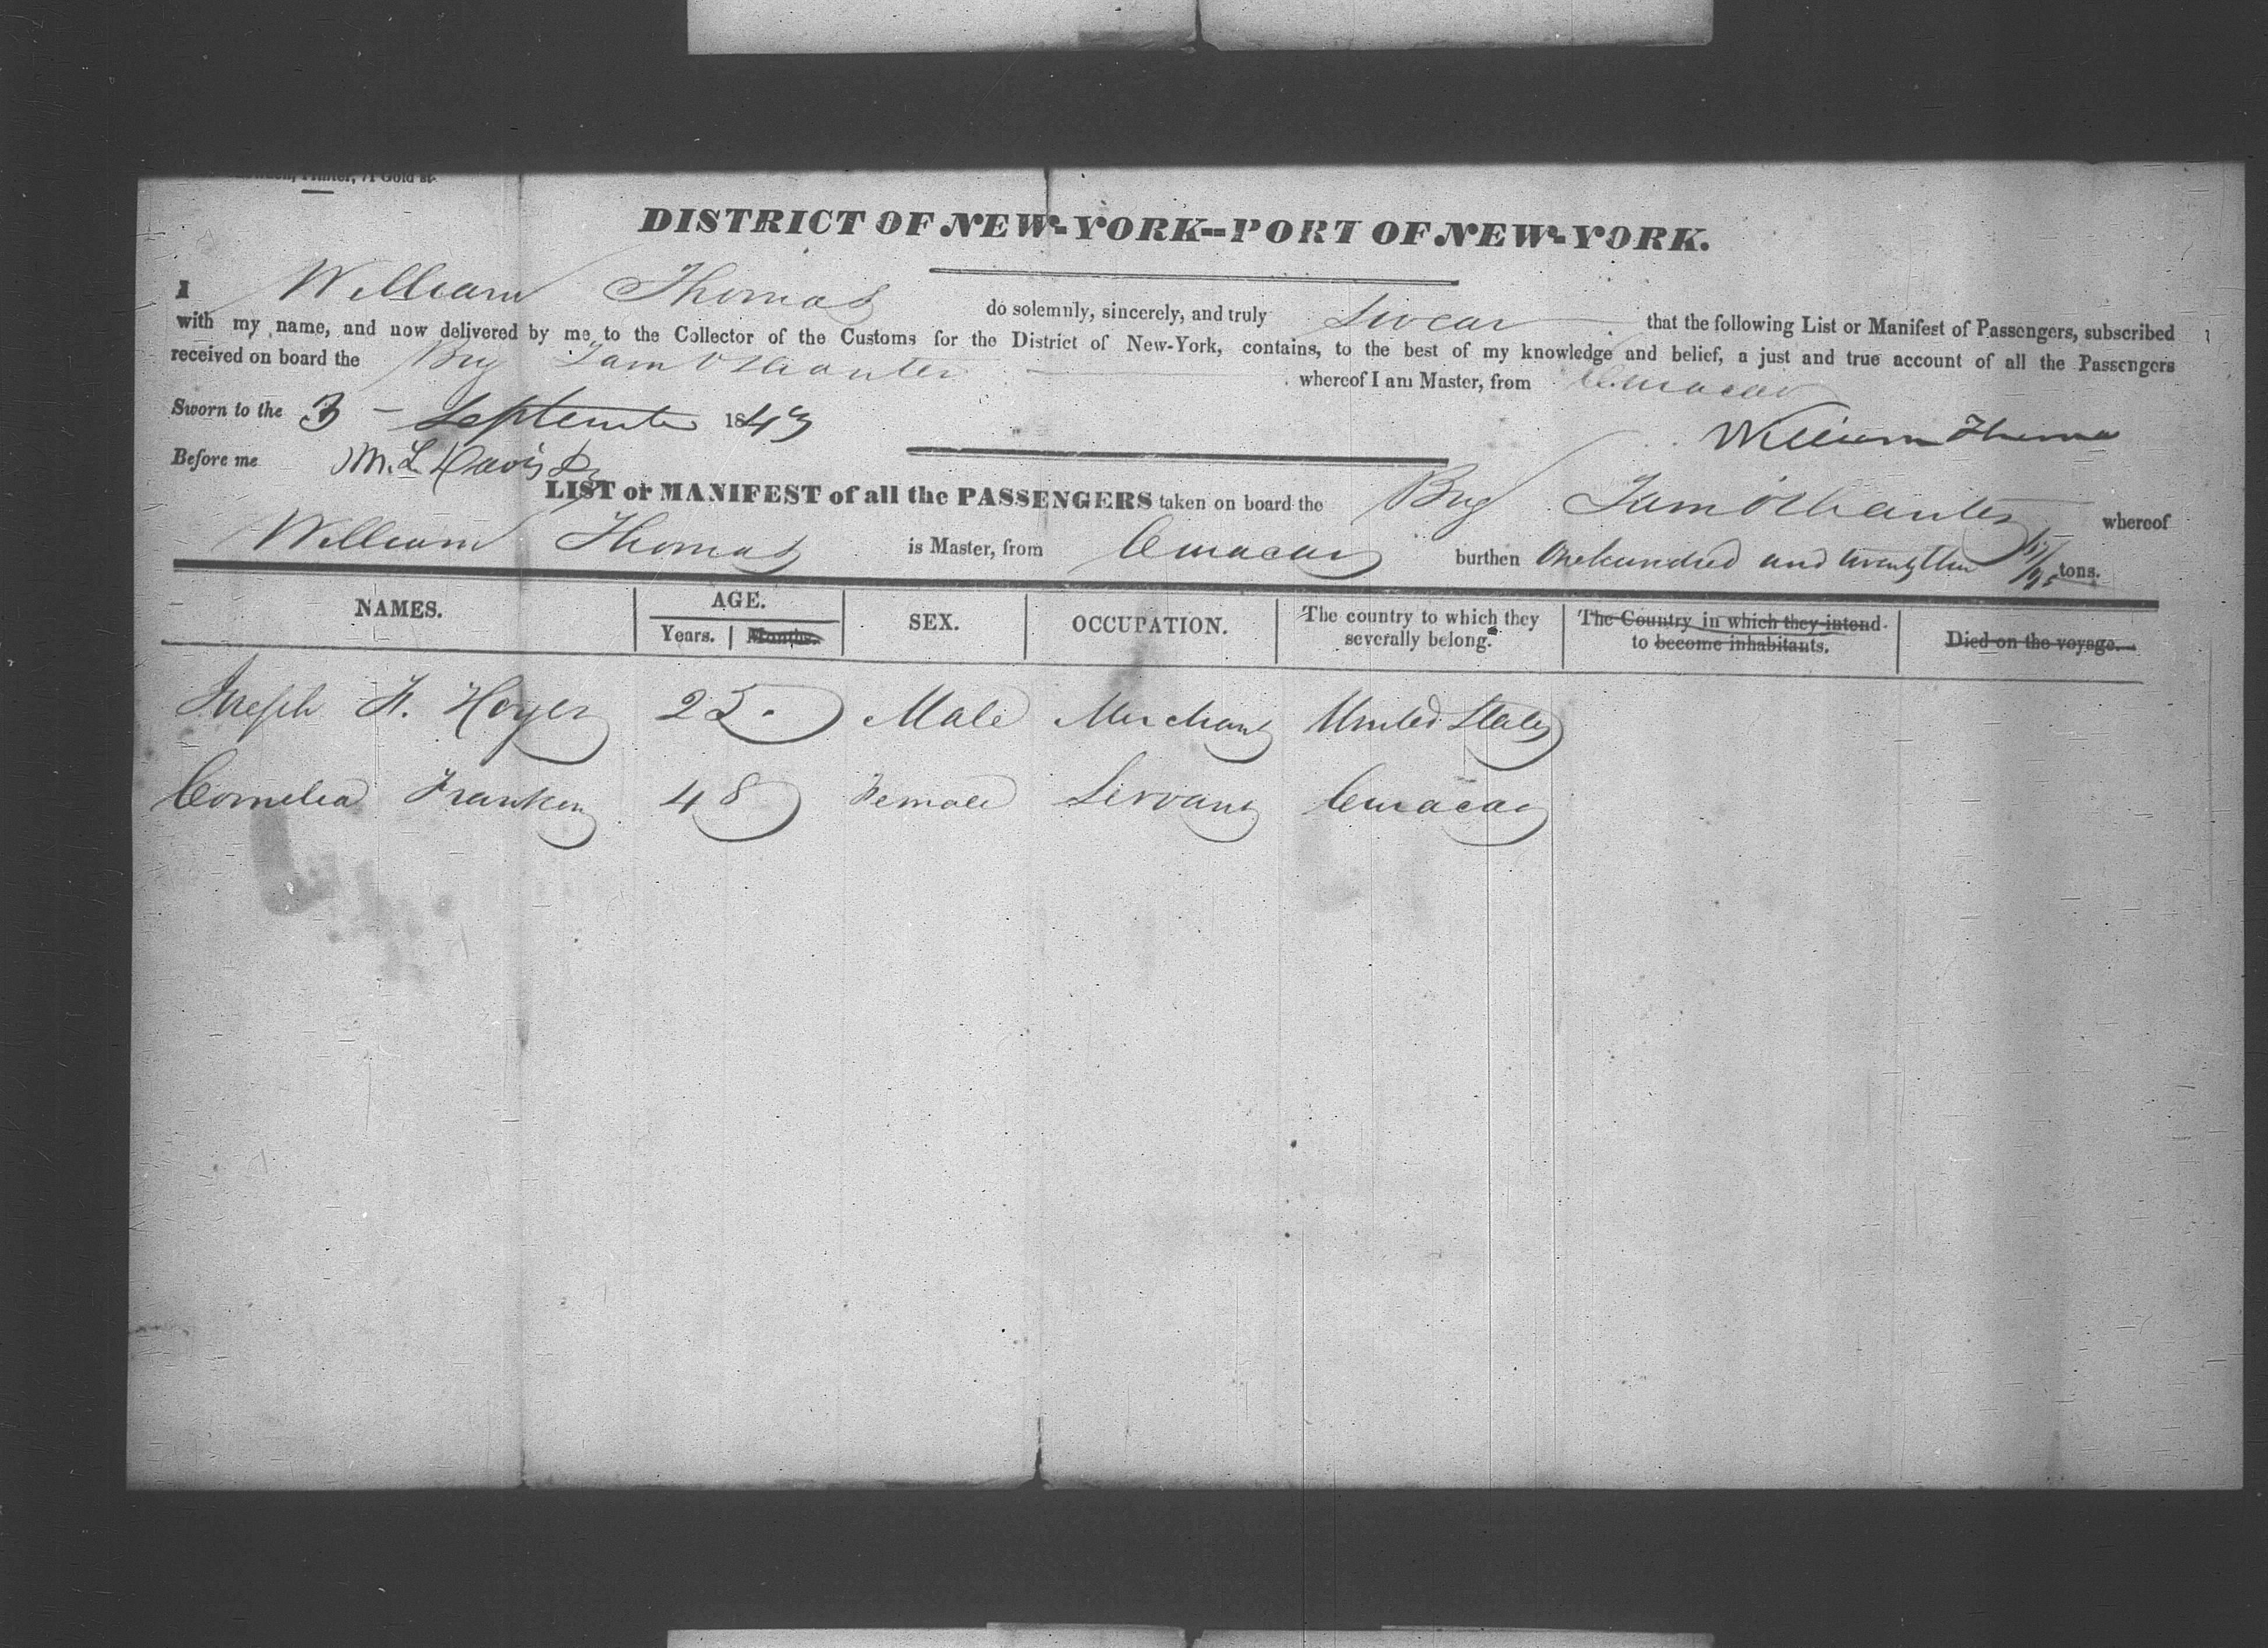 Printer, 71 Gold st.
DISTRICT OF NEW-YORK--PORT OF NEW-YORK.
I William Thomas do solemnly, sincerely, and truly Swear that the following List or Manifest of Passengers, subscribed
with my name, and now delivered by me to the Collector of the Customs for the District of New-York, contains, to the best of my knowledge and belief, a just and true account of all the Passengers
received on board the Brig Tam O'Shanter whereof I am Master, from Curacao
Sworn to the 3 - September 1843
William Thomas
Before me M. L. Davis
LIST or MANIFEST of all the PASSENGERS taken on board the Brig Tam O'Shanter whereof
William Thomas is Master, from Curacao burthen One hundred and twenty tons.
NAMES. AGE. SEX. OCCUPATION. The country to which they severally belong. The Country in which they intend to become inhabitants. Died on the voyage.
Years. Months.
Joseph H. Hoyer 25. Male Merchant United States
Cornelia Franken 48 Female Servant Curacao